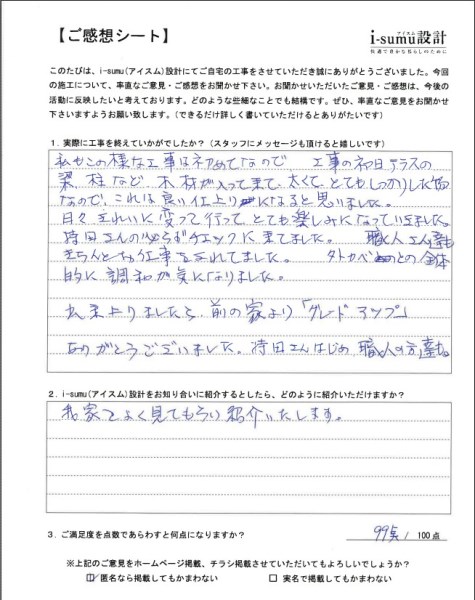 【ご感想シート】
アイスム
i-sumu設計
快適で豊かな暮らしのために
このたびは、i-sumu(アイスム)設計にてご自宅の工事をさせていただき誠にありがとうございました。今回
の施工について、率直なご意見・ご感想をお聞かせ下さい。お聞かせいただいたご意見、ご感想は、今後の
活動に反映したいと考えております。どのような些細なことでも結構です。ぜひ、率直なご意見をお聞かせ
下さいますようお願い致します。（できるだけ詳しく書いていただけるとありがたいです）
1．実際に工事を終えていかがでしたか？（スタッフにメッセージも頂けると嬉しいです）
私もこの様な工事は初めてなので 工事の初日テラスの
梁、柱など、木材が入って来て、太くて、とてもしっかりした物
なので、これは良い仕上りになると思いました。
日々きれいに変って行って とても楽しみになっていきました。
持田さんの必らずチェックに来てました。 職人さん達も
きちんとした工事をされてました。 外カベなどの全体
的に調和が気になりました。
出来上りましたら、前の家より「グレードアップ」
ありがとうございました。持田さんはじめ 職人の方達も。
2．i-sumu(アイスム)設計をお知り合いに紹介するとしたら、どのように紹介いただけますか？
我家をよく見てもらい紹介いたします。
3．ご満足度を点数であらわすと何点になりますか？ 99点 / 100点
※上記のご意見をホームページ掲載、チラシ掲載させていただいてもよろしいでしょうか？
☑ 匿名なら掲載してもかまわない □ 実名で掲載してもかまわない